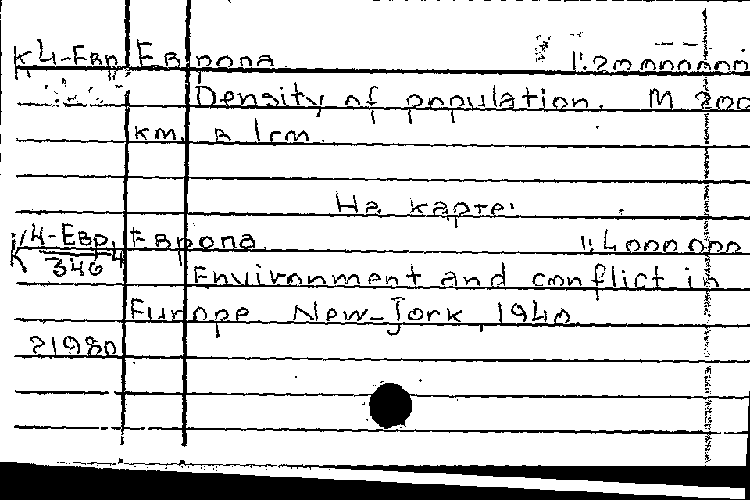 К 4-Евр Европа 1:20000000
Density of population. М 200
км. в 1см.
На карте:
К 4-Евр. Европа 1:4000000
346
Environment and conflict in
Europe New-Jork, 1940
21980